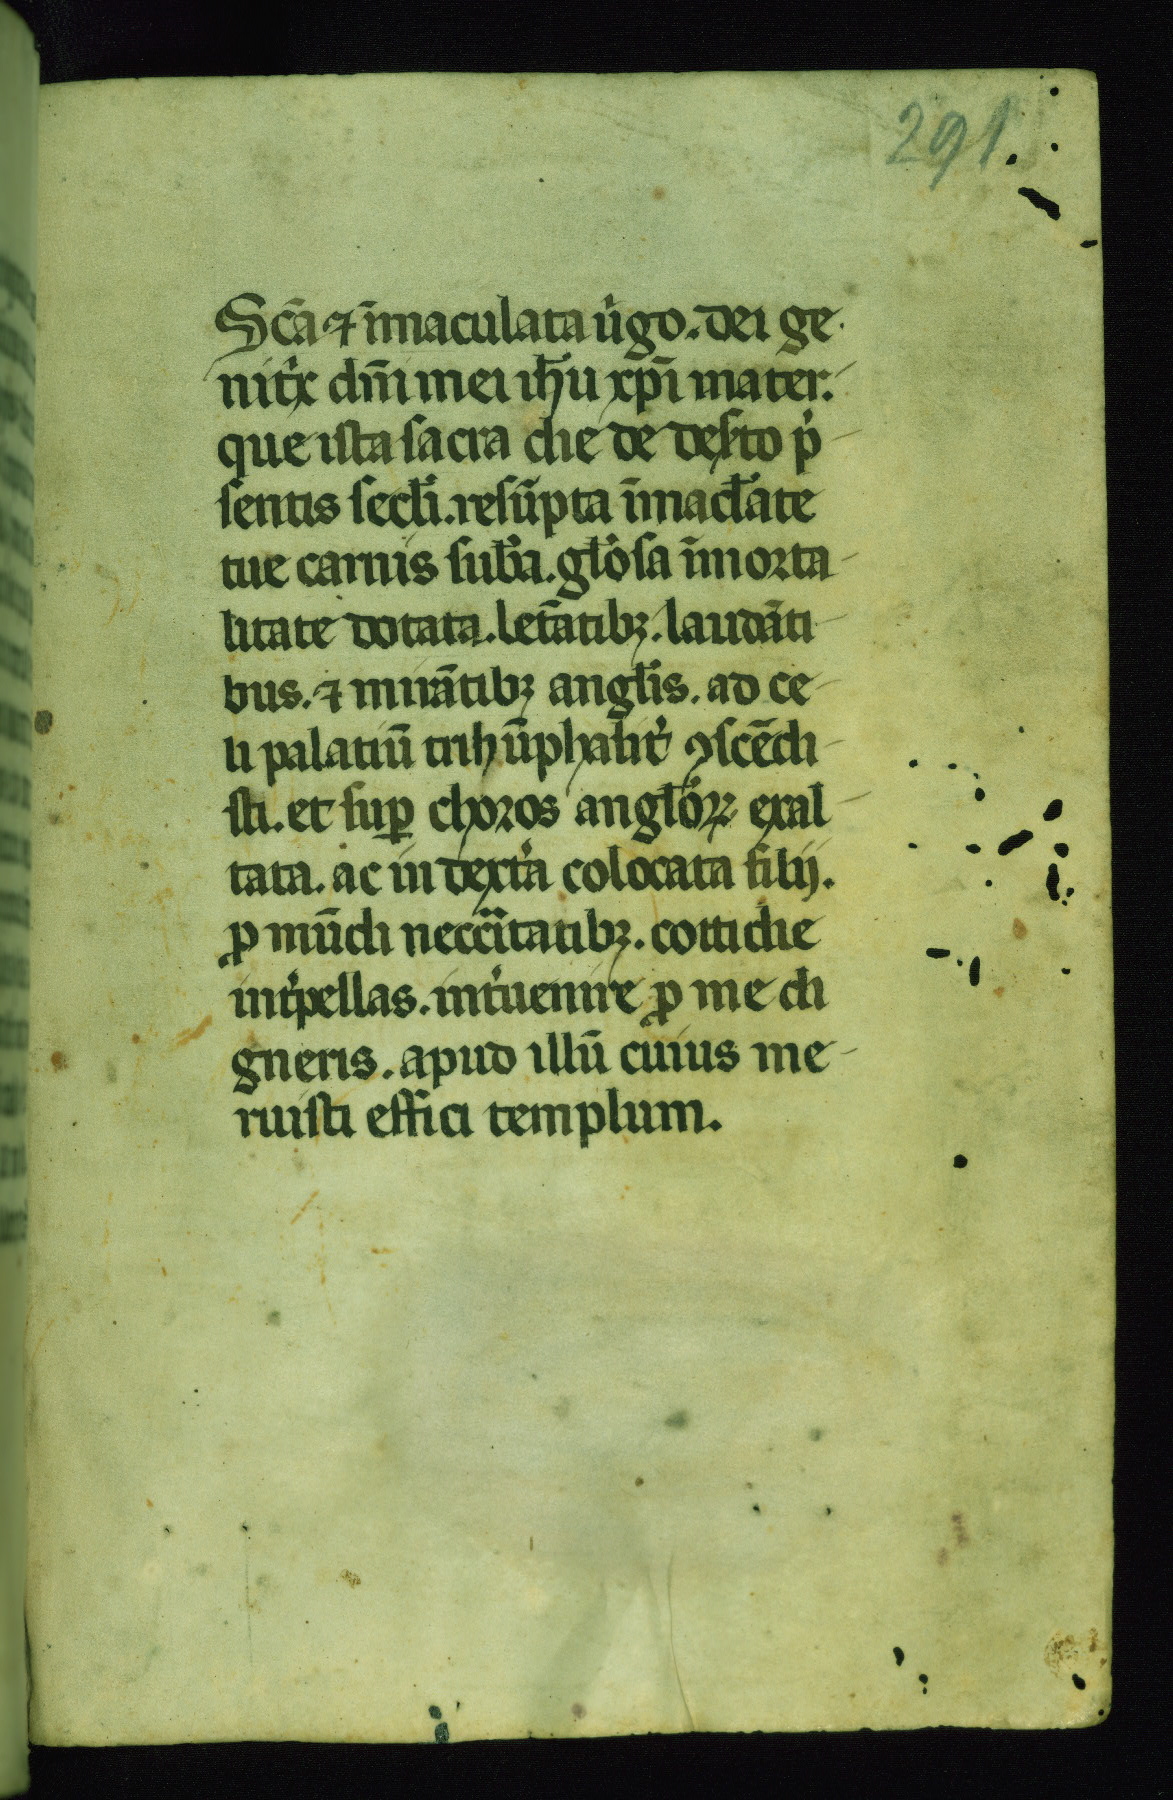 291.
Sc̄a ⁊ īmaculata v̓go. dei ge-
nit̓x dn̄i mei ih̄u xp̄i mater.
que ista sacra die de deserto p̓-
sentis secl̄i. resūpta īmacl̄ate
tue carnis sub̄a. gl̓osa īmorta-
litate dotata. letātibꝫ. laudāti-
bus. ⁊ mirātibꝫ angl̄is. ad ce-
li palatiū trihūphalit̓ ꝯscēdi-
sti. et suꝑ choros angl̓oꝝ exal-
tata. ac in dext̓a colocata filij.
ꝓ mūdi neccītatibꝫ. cottidie
int̓pellas. int̓uenire ꝓ me di
gneris. apud illū cuius me-
ruisti effici templum.